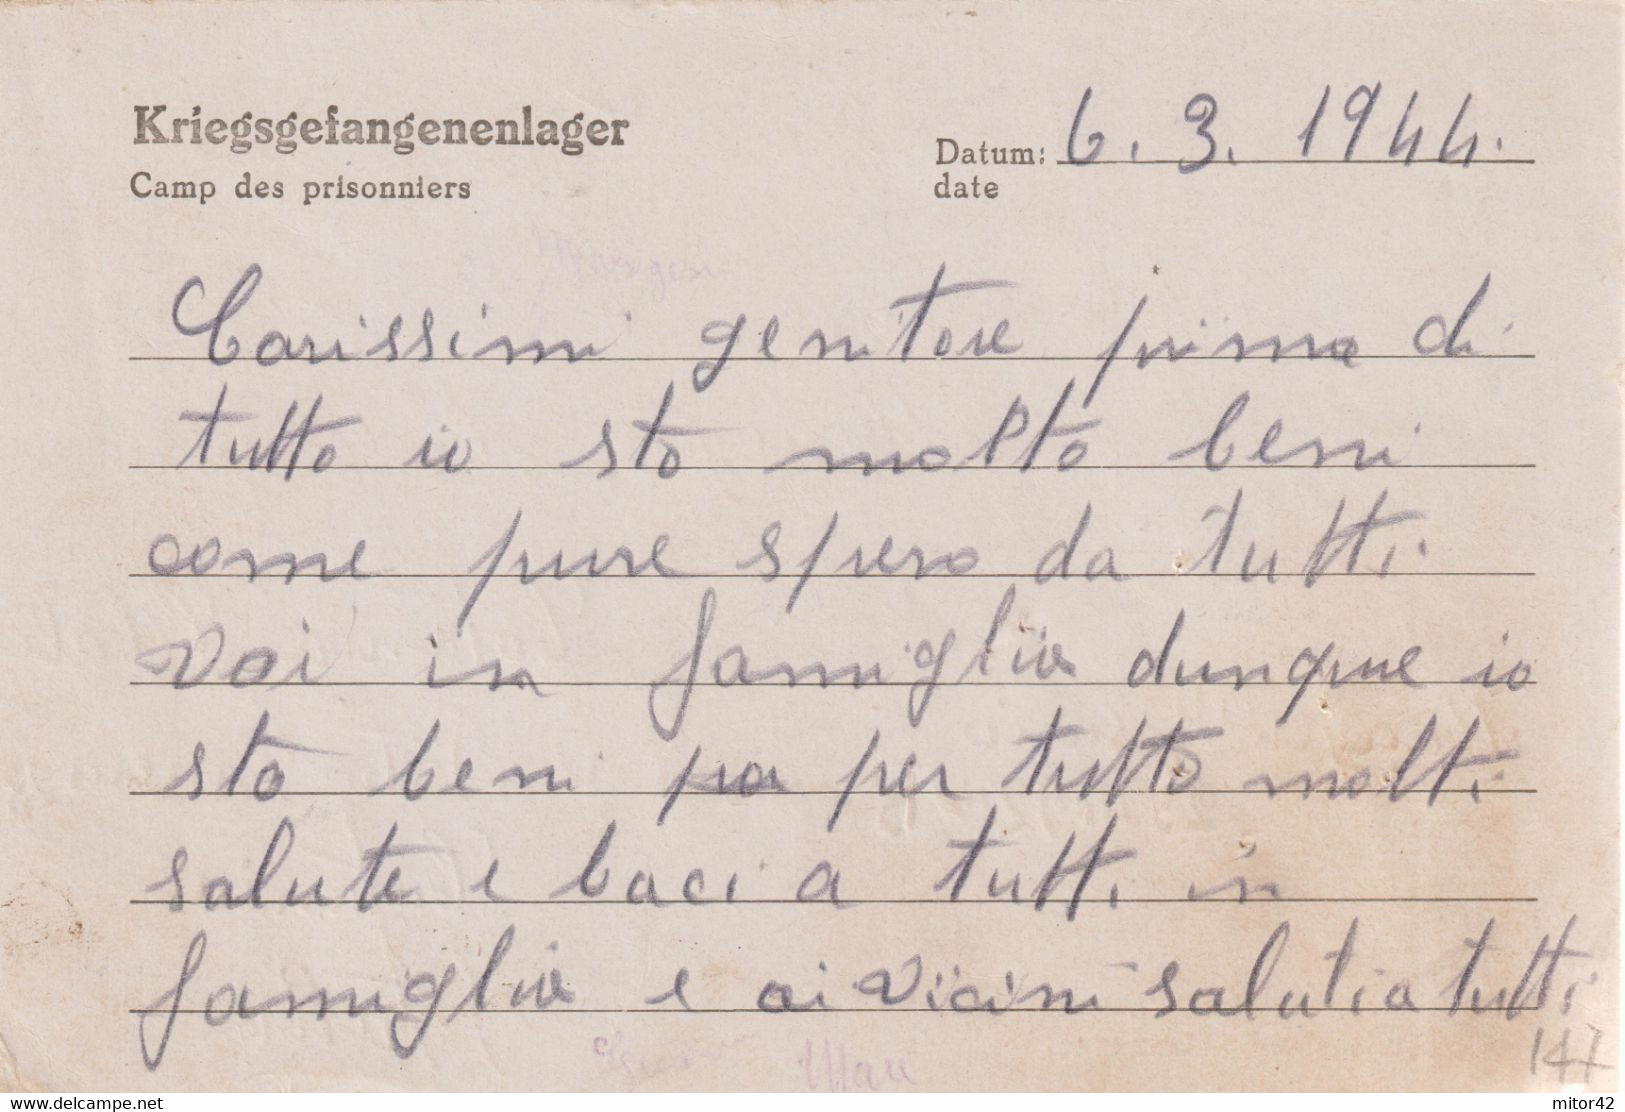 Kriegsgefangenenlager
Camp des prisonniers
Datum: 6. 3. 1944.
date
Carissimi genitore prima di
tutto io sto molto beni
come pure spero da tutti
voi in famiglia dunque io
sto beni pa per tutto molti
salute e baci a tutti in
famiglia e ai vicini saluti a tutti
147
delcampe.net
mitor42